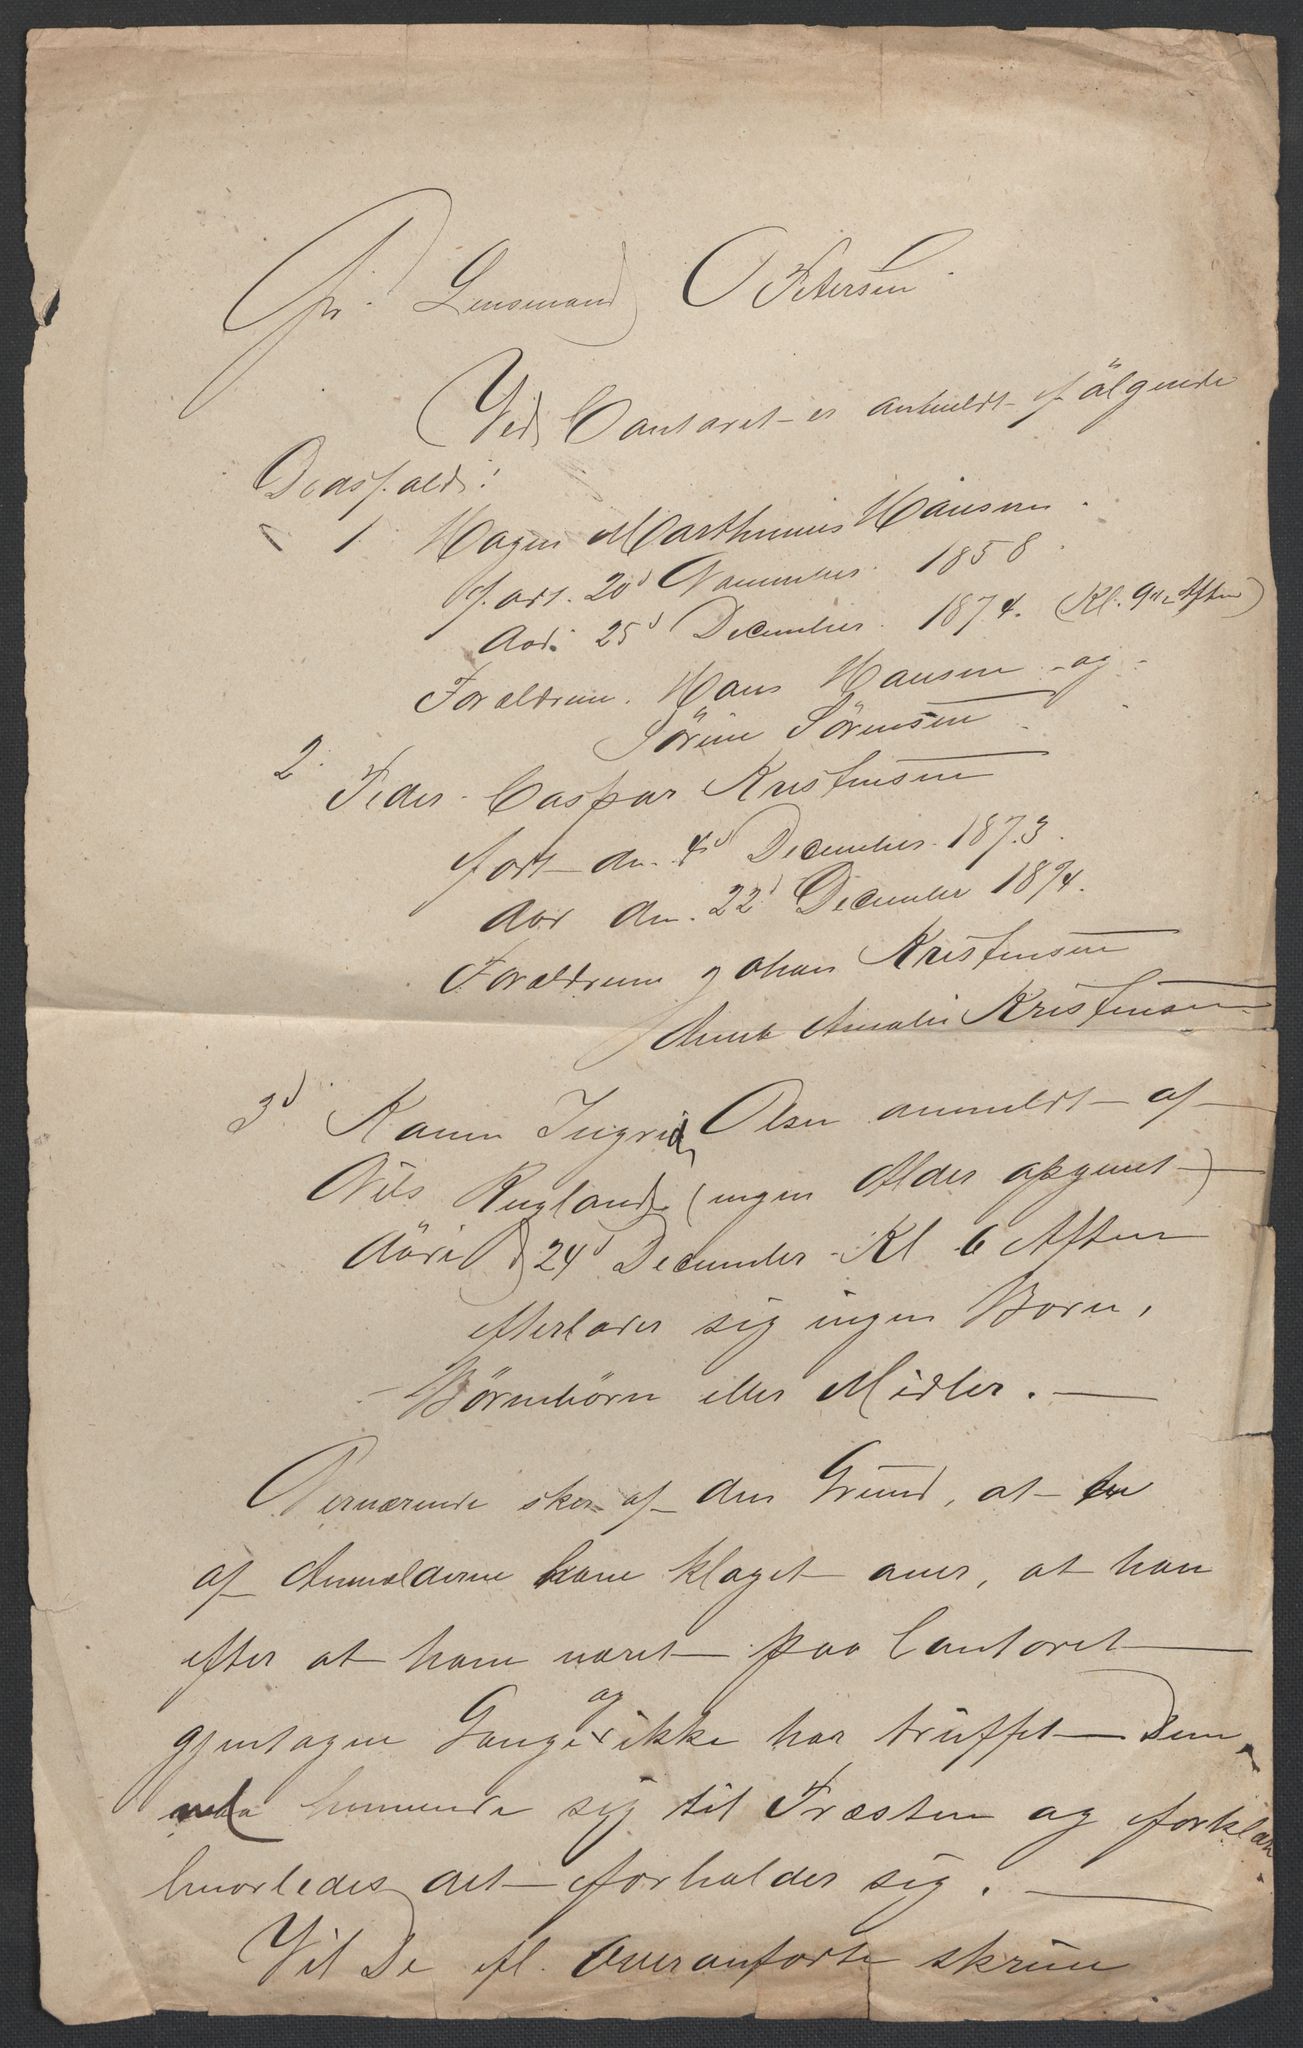 Hr. Lensmand O Petersen
Ved Contoret er anmeldt følgende
Dødsfald:
1 Hagen Marthinius Hansen.
født. 20d November. 1858.
død. 25d December. 1874. (Kl. 9 Aften)
Forældrene. Hans Hansen og
Sørine Sørensen
2. Peder Caspar Kristensen
født den. 4d December. 1873.
død den. 22d December 1874.
Forældrene Johan Kristensen
Anna Amalie Kristensen
3d Karen Ingrid Olsen anmeldt af
Nils Rugland (ingen Alder opgivet)
døde d 24d December Kl 6 Aften
efterlader sig ingen Børn,
Børnebørn eller Midler.
Nærværende sker af den Grund, at en
af Anmelderne have klaget over, at han
efter at have været paa Contoret
gjentagen Gange og ikke har truffet Dem,
henvende sig til Præsten og forklare
hvorledes det forholder sig.
Vil De fl. Overanførte skrive